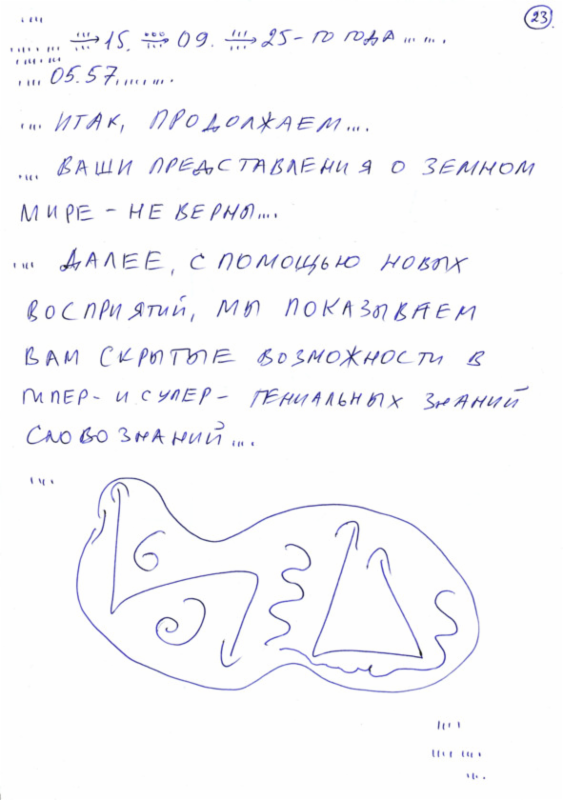 23.
15. 09. 25-ГО ГОДА... ...
.... 05.57. ... ....
.... ИТАК, ПРОДОЛЖАЕМ....
.... ВАШИ ПРЕДСТАВЛЕНИЯ О ЗЕМНОМ
МИРЕ - НЕ ВЕРНЫ....
.... ДАЛЕЕ, С ПОМОЩЬЮ НОВЫХ
ВОСПРИЯТИЙ, МЫ ПОКАЗЫВАЕМ
ВАМ СКРЫТЫЕ ВОЗМОЖНОСТИ В
ГИПЕР- И СУПЕР- ГЕНИАЛЬНЫХ ЗНАНИЙ
СЛОВОЗНАНИЙ....